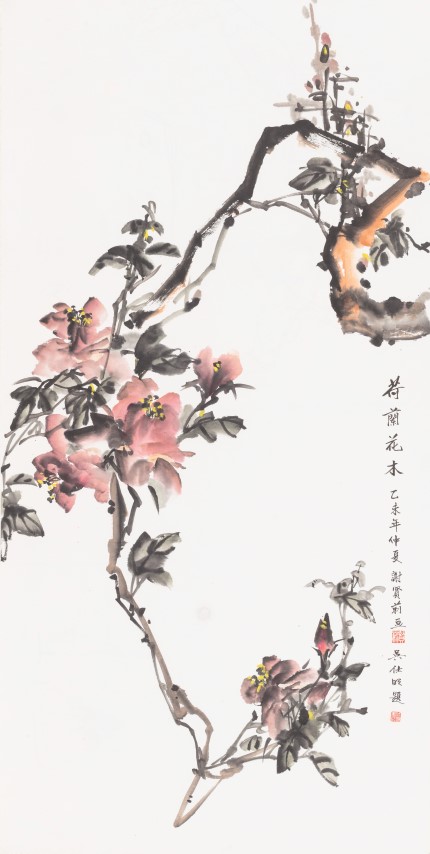 荷蘭花木
乙未年仲夏 謝賢前畫
吳仕明題